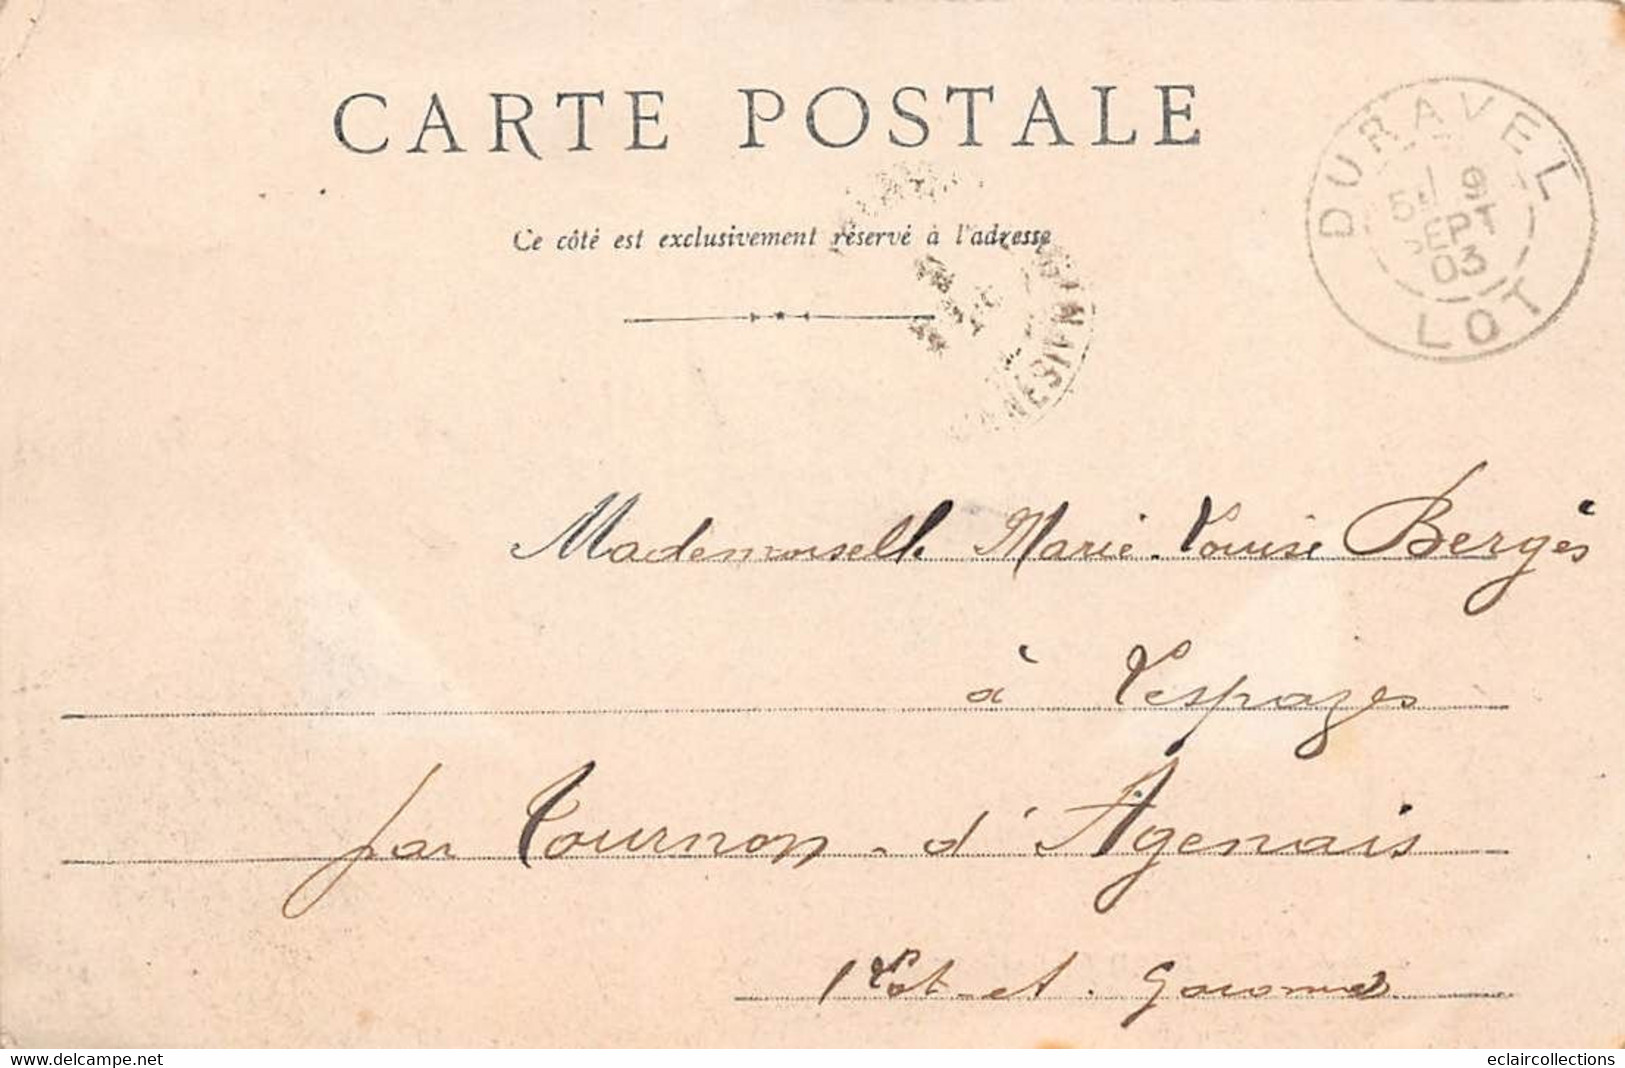 CARTE POSTALE
Ce côté est exclusivement réservé à l'adresse
DURAVEL
19
SEPT
03
LOT
Mademoiselle Marie-Louise Bergès
à Lespazes
par Tournon-d'Agenais
Lot-et-Garonne
www.delcampe.net
eclaircollections